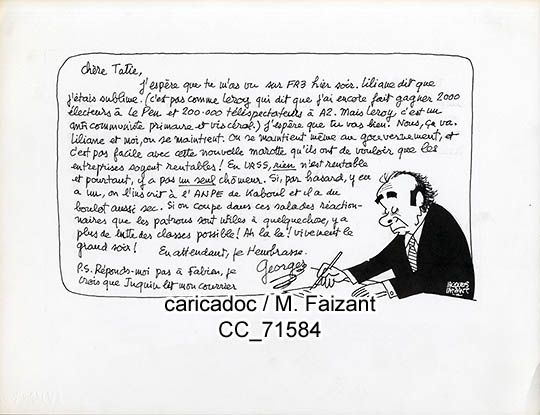 Chère Tatie,
j'espère que tu m'as vu sur FR3 hier soir. Liliane dit que
j'étais sublime. (c'est pas comme Leroy qui dit que j'ai encore fait gagner 2000
électeurs à Le Pen et 200.000 téléspectateurs à A2. Mais Leroy, c'est un
anticommuniste primaire et viscéral.) j'espère que tu vas bien. Nous, ça va.
Liliane et moi, on se maintient. On se maintient même au gouvernement, et
c'est pas facile avec cette nouvelle marotte qu'ils ont de vouloir que les
entreprises soyent rentables ! En URSS, rien n'est rentable
et pourtant, y a pas un seul chômeur. Si, par hasard, y en
a un, on l'inscrit à l'ANPE de Kaboul et il a du
boulot aussi sec. Si on coupe dans ces salades réaction-
naires que les patrons sont utiles à quelquechose, y a
plus de lutte des classes possible ! Ah la la ! vivement le
grand soir !
En attendant, je t'embrasse.
Georges
P.S. Réponds-moi pas à Fabien, je
crois que Juquin lit mon courrier
JACQUES FAIZANT
caricadoc / M. Faizant
CC_71584